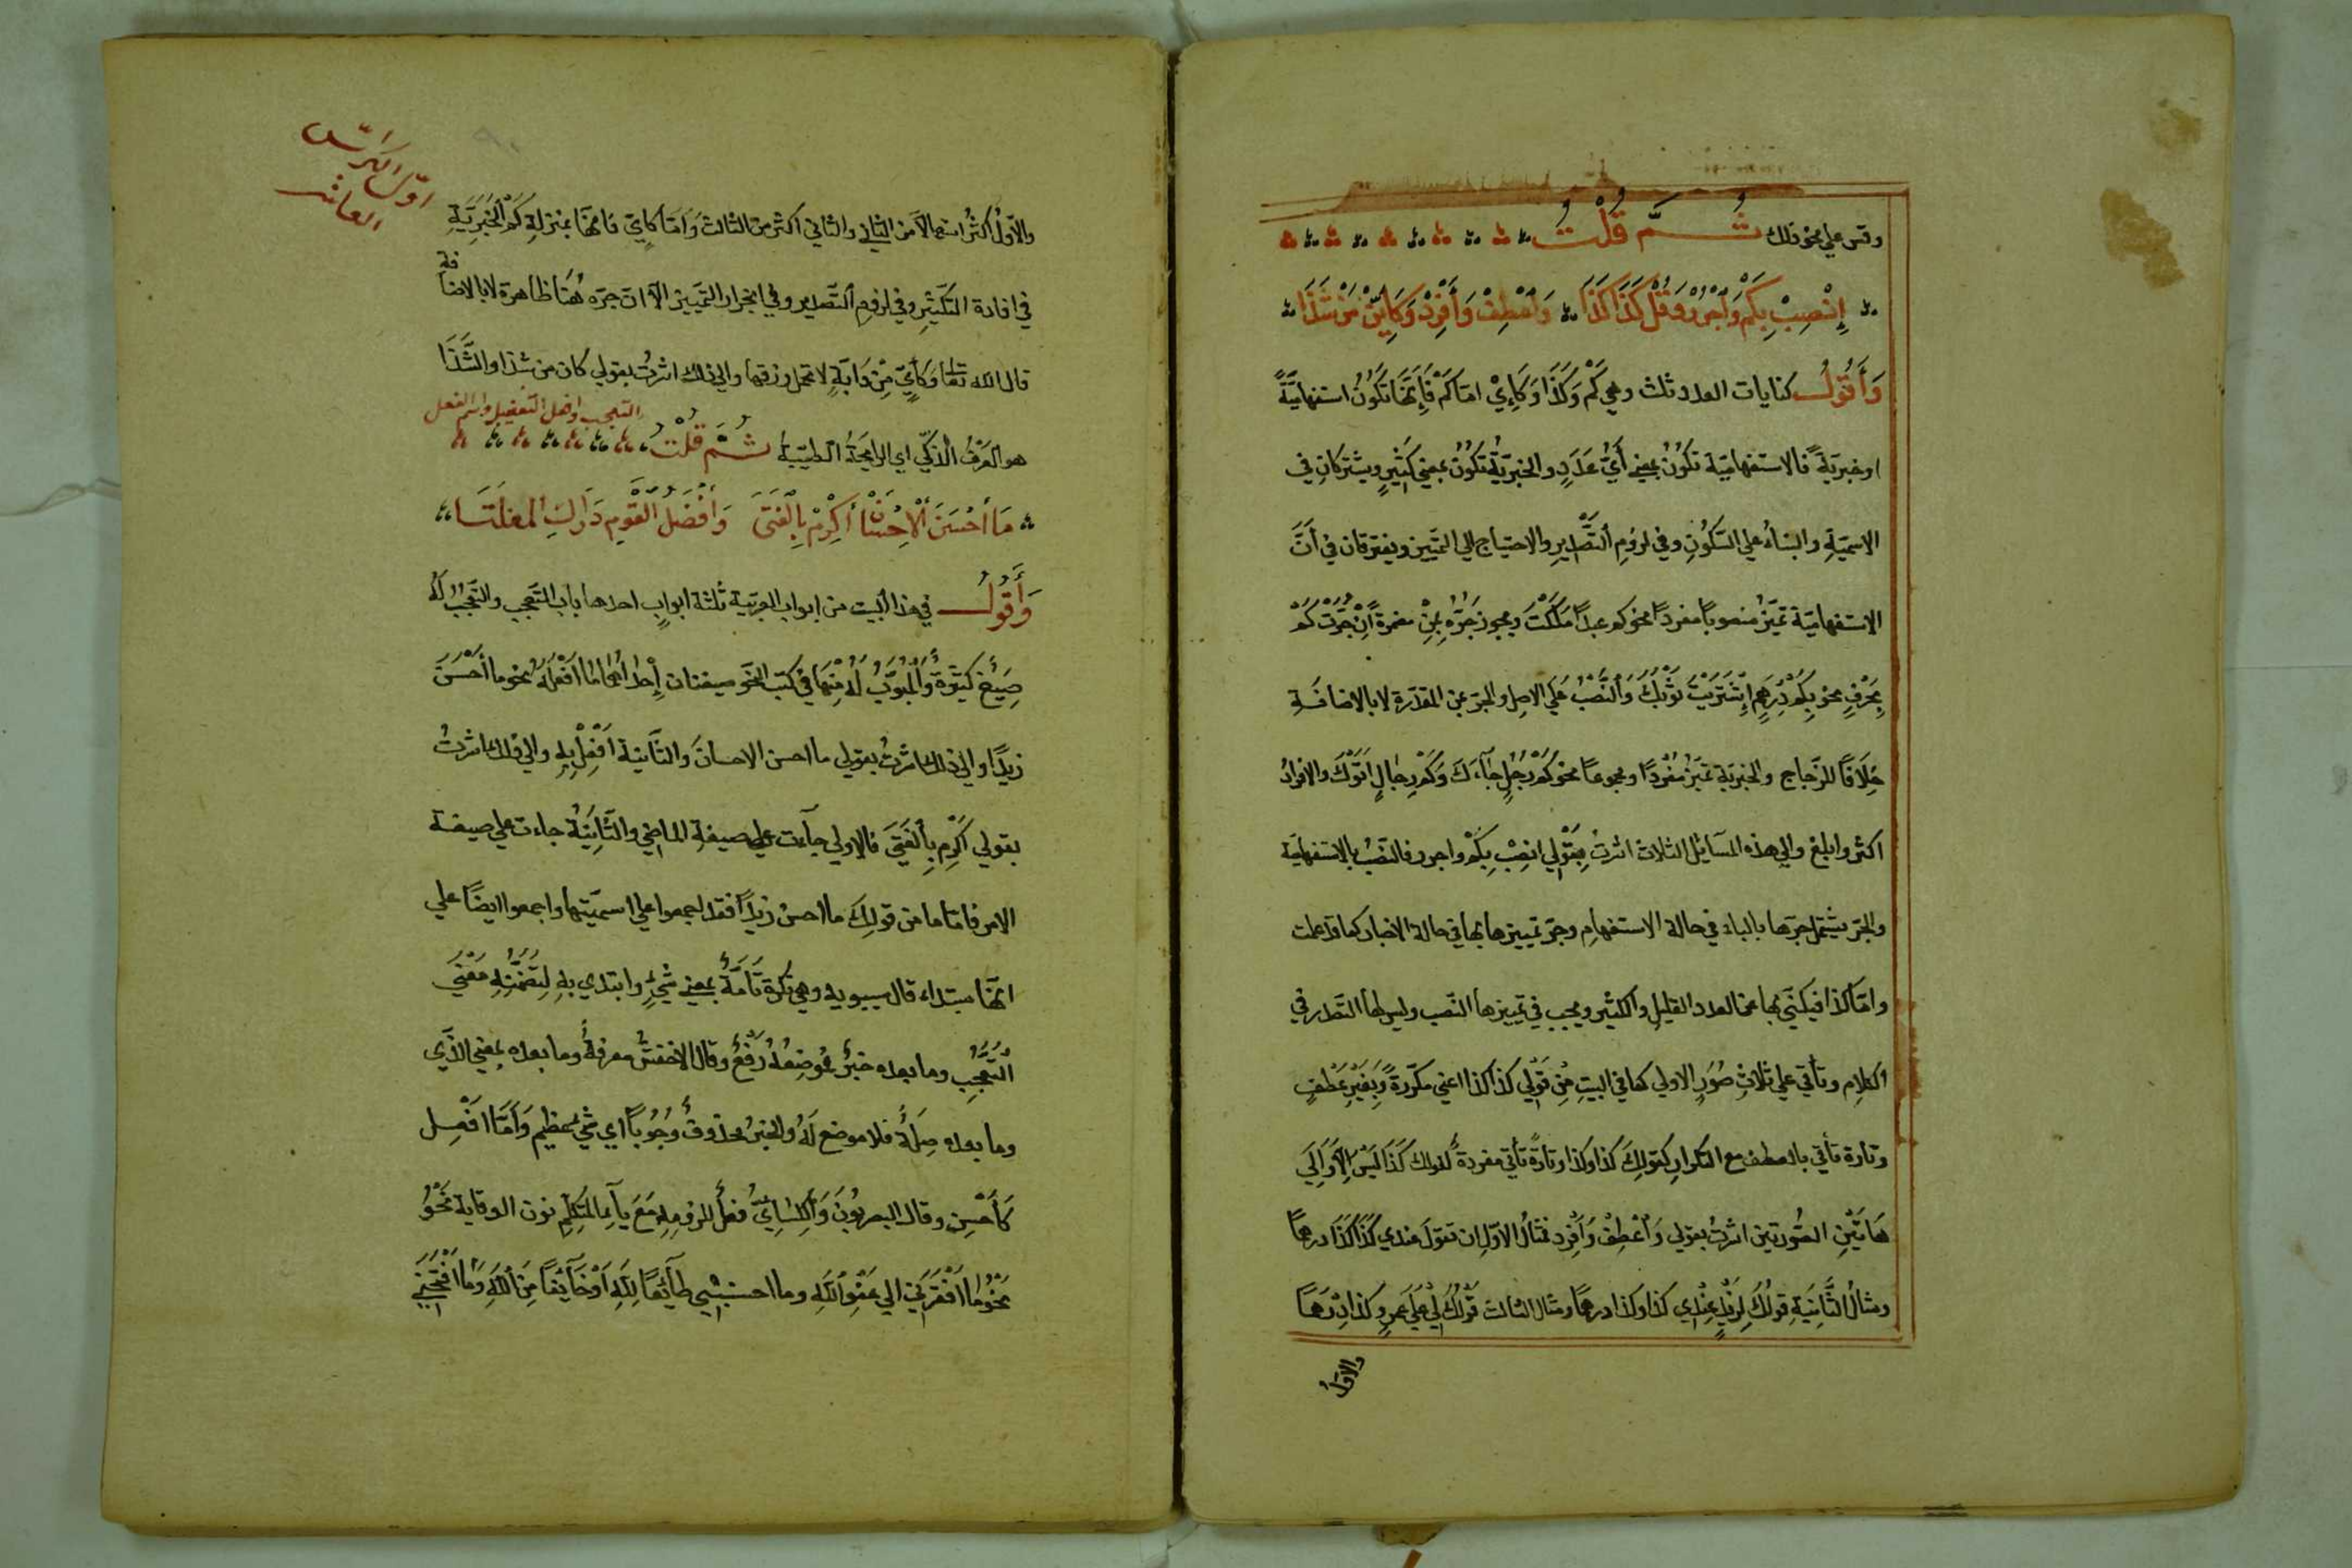 وقس علي نحو ذلك ثُمَّ قُلْتُ
إِنْصِبْ بِكَمْ وَاجْرُرْ وَقُلْ كَذَا كَذَا وَاعْطِفْ وَأَفْرِدْ وَكَايِّنْ مِنْ شَذَا
وَأَقُولُ كنايات العدد ثلث وهي كَمْ وَكَذَا وَكَايٍّ امّا كَمْ فَإِنَّهَا تَكُونُ استفهاميّةً
او خبريّةً فالاستفهاميّة تكُونُ بمعني أَيُّ عَدَدٍ والخبريّةُ تكُونُ بمعني كَثِيرٍ ويشتركانِ في
الاسميّةِ والبناءُ علي السّكُونِ وفي لزومِ التَّصْدِيرِ والاحتياج الي التمييز ويفترقان في أنَّ
الاستفهاميّة تميّزُ منصوبًا مفردًا نحو كم عبدًا مَلَكْتَ ويجوز جَرُّهُ بِمِنْ مضمرةً إِنْ جُرَّتْ كَمْ
بِحَرْفٍ نحو بِكَمْ دِرْهَمٍ إِشْتَرَيْتَ ثَوْبَكَ وَالنَّصْبُ عَلي الاصل والجرّ بمن المقدّرة لا بالاضافَةِ
خِلَافًا للزّجاج والخبريّة تميّزُ مُفْرَدًا ومجموعًا نحو كَمْ رَجُلٍ جَآءَكَ وَكَمْ رِجَالٍ اَتَوْكَ والافرادُ
اكثر وابلغ والي هذه المسآئل الثلاث اشرتُ بِقَوْلِي انصِبْ بِكَمْ واجرر فالنصْبُ بالاستفهاميّة
والجرّ يشتمل جرّها بالباء في حالة الاستفهامِ وجرّ تمييزها بها في حالة الاخبار كما قد علمت
وامّا كذا فيكنّي بها عن العدد القليل والكثير ويجب في تمييزها النّصب وليس لها التّصدّر في
الكلام وتأتي علي ثَلاثِ صُوَرٍ الاولي كما في البيتِ مِنْ قَوْلِي كذا كذا اعني مكرّرةً وَبِغَيْرِ عَطْفٍ
وتارة تأتي بالعطف مع التكرار كقولكَ كذا وكذا وتارةً تأتي مفردةً كقولك كَذَا لَيْسَ إِلَّا وَإِلَي
هَاتَيْنِ الصُّورتين اشرتُ بقولي وَاعْطِفْ وَأَفْرِد فمثالُ الاوّل ان تقولَ عندي كَذَا كَذَا درهمًا
ومثالُ الثَّانِيَةِ قولُكَ لِزَيْدٍ عِنْدِي كذا وكذا درهمًا ومثال الثالث قَوْلُكَ لِي عَلَي عمرٍو كذا دِرْهَمًا
والاوّلُ
اوّل الكرّاس
العاشر
والاوّلُ اكثرُ استعمالاً من الثاني والثاني اكثر من الثالث وَأَمَّا كَايٍّ فانّهَا بمنزلةِ كَمْ الْخَبَرِيّةِ
في افادة التكثيرِ وفي لزومِ التَّصدير وفي انجرار التّمييز الّا انّ جرّه هُنَا ظاهرة لا بالاضافة
قال الله تعا وَكَايٍّ مِنْ دَابَّةٍ لا تحمل رزقها والي ذلك اشرتُ بقولي كان من شذا والشَّذَا
هو العَرْفُ الذّكّي اي الرايحَةُ الطيّبة ثُمَّ قُلْتُ التعجب وافعل التفضيل واسم الفعل
مَا أَحْسَنَ الْإِحْسَانَ أَكْرِمْ بِالْفَتَى وَأَفْضَلُ الْقَوْمِ
وَأَقُولُ في هذا البيت من ابواب العربيّة ثلثة ابوابٍ احدها باب التّعجب والتّعجّبُ لَهُ
صِيَغٌ كَثِيرَةٌ وَالْمُبَوَّبُ لَهُ مِنْهَا في كتب النحو صيغتان إِحْدَاهُمَا مَا أَفْعَلَهُ نحو ما أَحْسَنَ
زيدًا والي ذلك اشرتُ بقولي ما احسن الاحسانَ والثَّانية أَفْعِلْ بِهِ والي ذلك اشرتُ
بقولي أَكْرِم بِالْفَتَى فالاولي جآءت علي صيغة الماضي والثَّانِيَة جاءت علي صيغة
الامر فامّا ما من قولكَ ما احسن زيدًا فقد اجمعوا علي اسميّتها واجمعوا ايضًا علي
انّهَا مبتداء قال سيبويه وهي نكرة تَامَّةٌ بمعني شَيْءٍ وابتدي بهِ لِتَضَمُّنِهِ مَعْنَي
التّعجُّبِ وما بعده خبرٌ مَوْضِعُهُ رَفْعٌ وقال الاخفشُ معرفةٌ وما بعده بمعني الّذي
وما بعده صِلَةٌ فلا موضع لَهُ والخبرُ محذوفٌ وُجُوبًا اي شيٌ عظيم وَأَمَّا افْعِل
كَأَحْسِن وقال البصريُّونَ وَالْكِسَائِيُّ فعلٌ للزومه مَعَ يآء المتكلّمِ نون الوقاية نَحْوُ
نَحْوُ مَا أَفْقَرَنِي الي عَفْوِ اللَّهِ وما طَآئِعًا لِلَّهِ أَوْ خَآئِفًا مِنَ اللَّهِ وَمَا